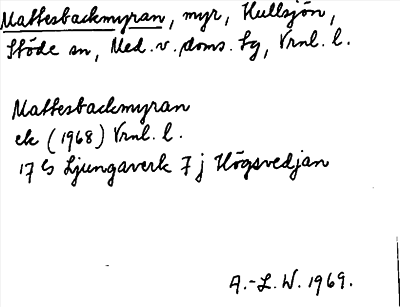 Mattesbackmyran, myr, Hullsjön,
Stöde sn, Med. v. doms. tg, Vrnl. l.
Mattesbackmyran
ek (1968) Vrnl. l.
17 Es Ljungaverk 7 j Högsvedjan
A.-L. W. 1969.